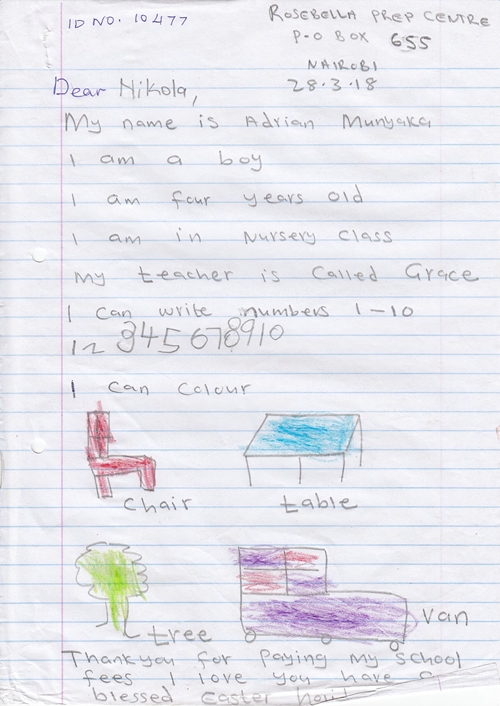 ID NO. 10477
ROSEBELLA PREP CENTRE
P.O BOX 655
NAIROBI
28.3.18
Dear Nikola,
My name is Adrian Munyaka
I am a boy
I am four years old
I am in Nursery Class
My teacher is Called Grace
I can write numbers 1-10
12345678910
I Can Colour
Chair table
tree van
Thankyou for paying my school
fees I love you have a
blessed Easter